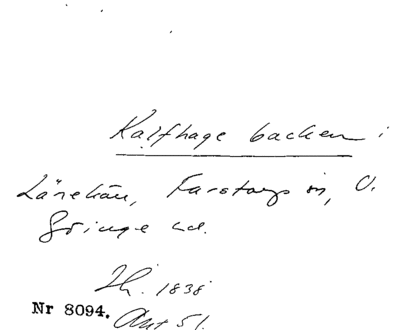 Kalfhage backen i
Lärekäu, Farstorps sn, V.
Göinge hd.
Th. 1838
Nr 8094. Akt 51.